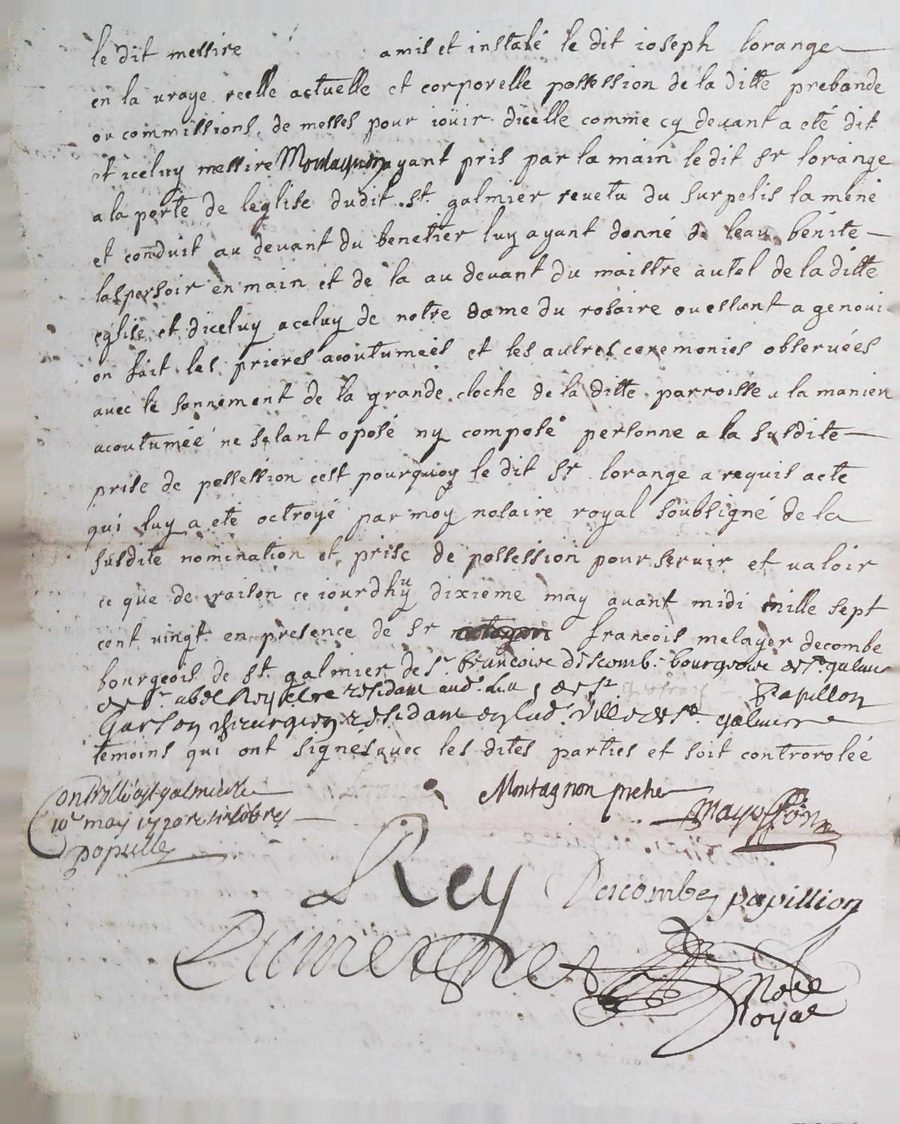 le dit messire amis et instalé le dit ioseph lorange
en la uraye reelle actuelle et corporelle possession de la ditte prebande
ou commissions de messes pour ioüir dicelle comme cy deuant a eté dit
et iceluy messire Montagnon ayant pris par la main le dit sr lorange
a la porte de leglise dudit st galmier reuetu du surpelis la mené
et conduit au deuant du benetier luy ayant donné de leau bénite
laspersoir en main et de la au deuant du maistre autel de la ditte
eglise et diceluy a celuy de notre dame du rosaire ou estant a genoui
on fait les prieres acoutumeés et les autres ceremonies obseruées
auec le sonnement de la grande cloche de la ditte parroisse a la manier
acoutumée ne setant oposé ny composé personne a la susdite
prise de possession cest pourquoy le dit sr lorange a requis acte
qui luy a eté octroyé par moy notaire royal soubsigné de la
susdite nomination et prise de possession pour seruir et ualoir
ce que de raison ce iourdhuy dixiéme may auant midi mille sept
cent vingt en presence de sr francois melayer decombe
bourgeois de st galmier de sr
papillon
garson chirurgien residant
temoins qui ont signes auec les dites parties et soit controrolée
Montagnon
10e may 1720
Rey Descombe papillion
Note
royal